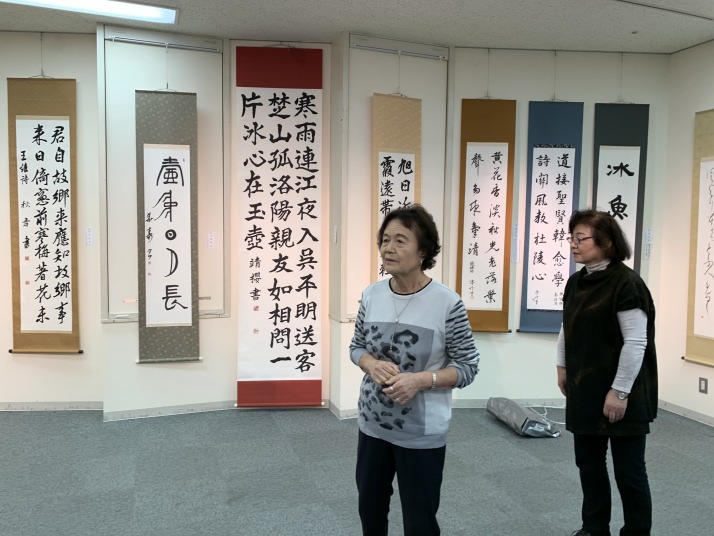 君自故鄉来應知故鄉事
来日倚窓前寒梅著花未
王維詩 秋香書
壺中日月長
寒雨連江夜入呉平明送客
楚山孤洛陽親友如相問一
片冰心在玉壺 靖櫻書
旭日
霞遠帯
黄花香淡秋光老落葉
道接聖賢韓愈學
詩開風教杜陵心
冰魚